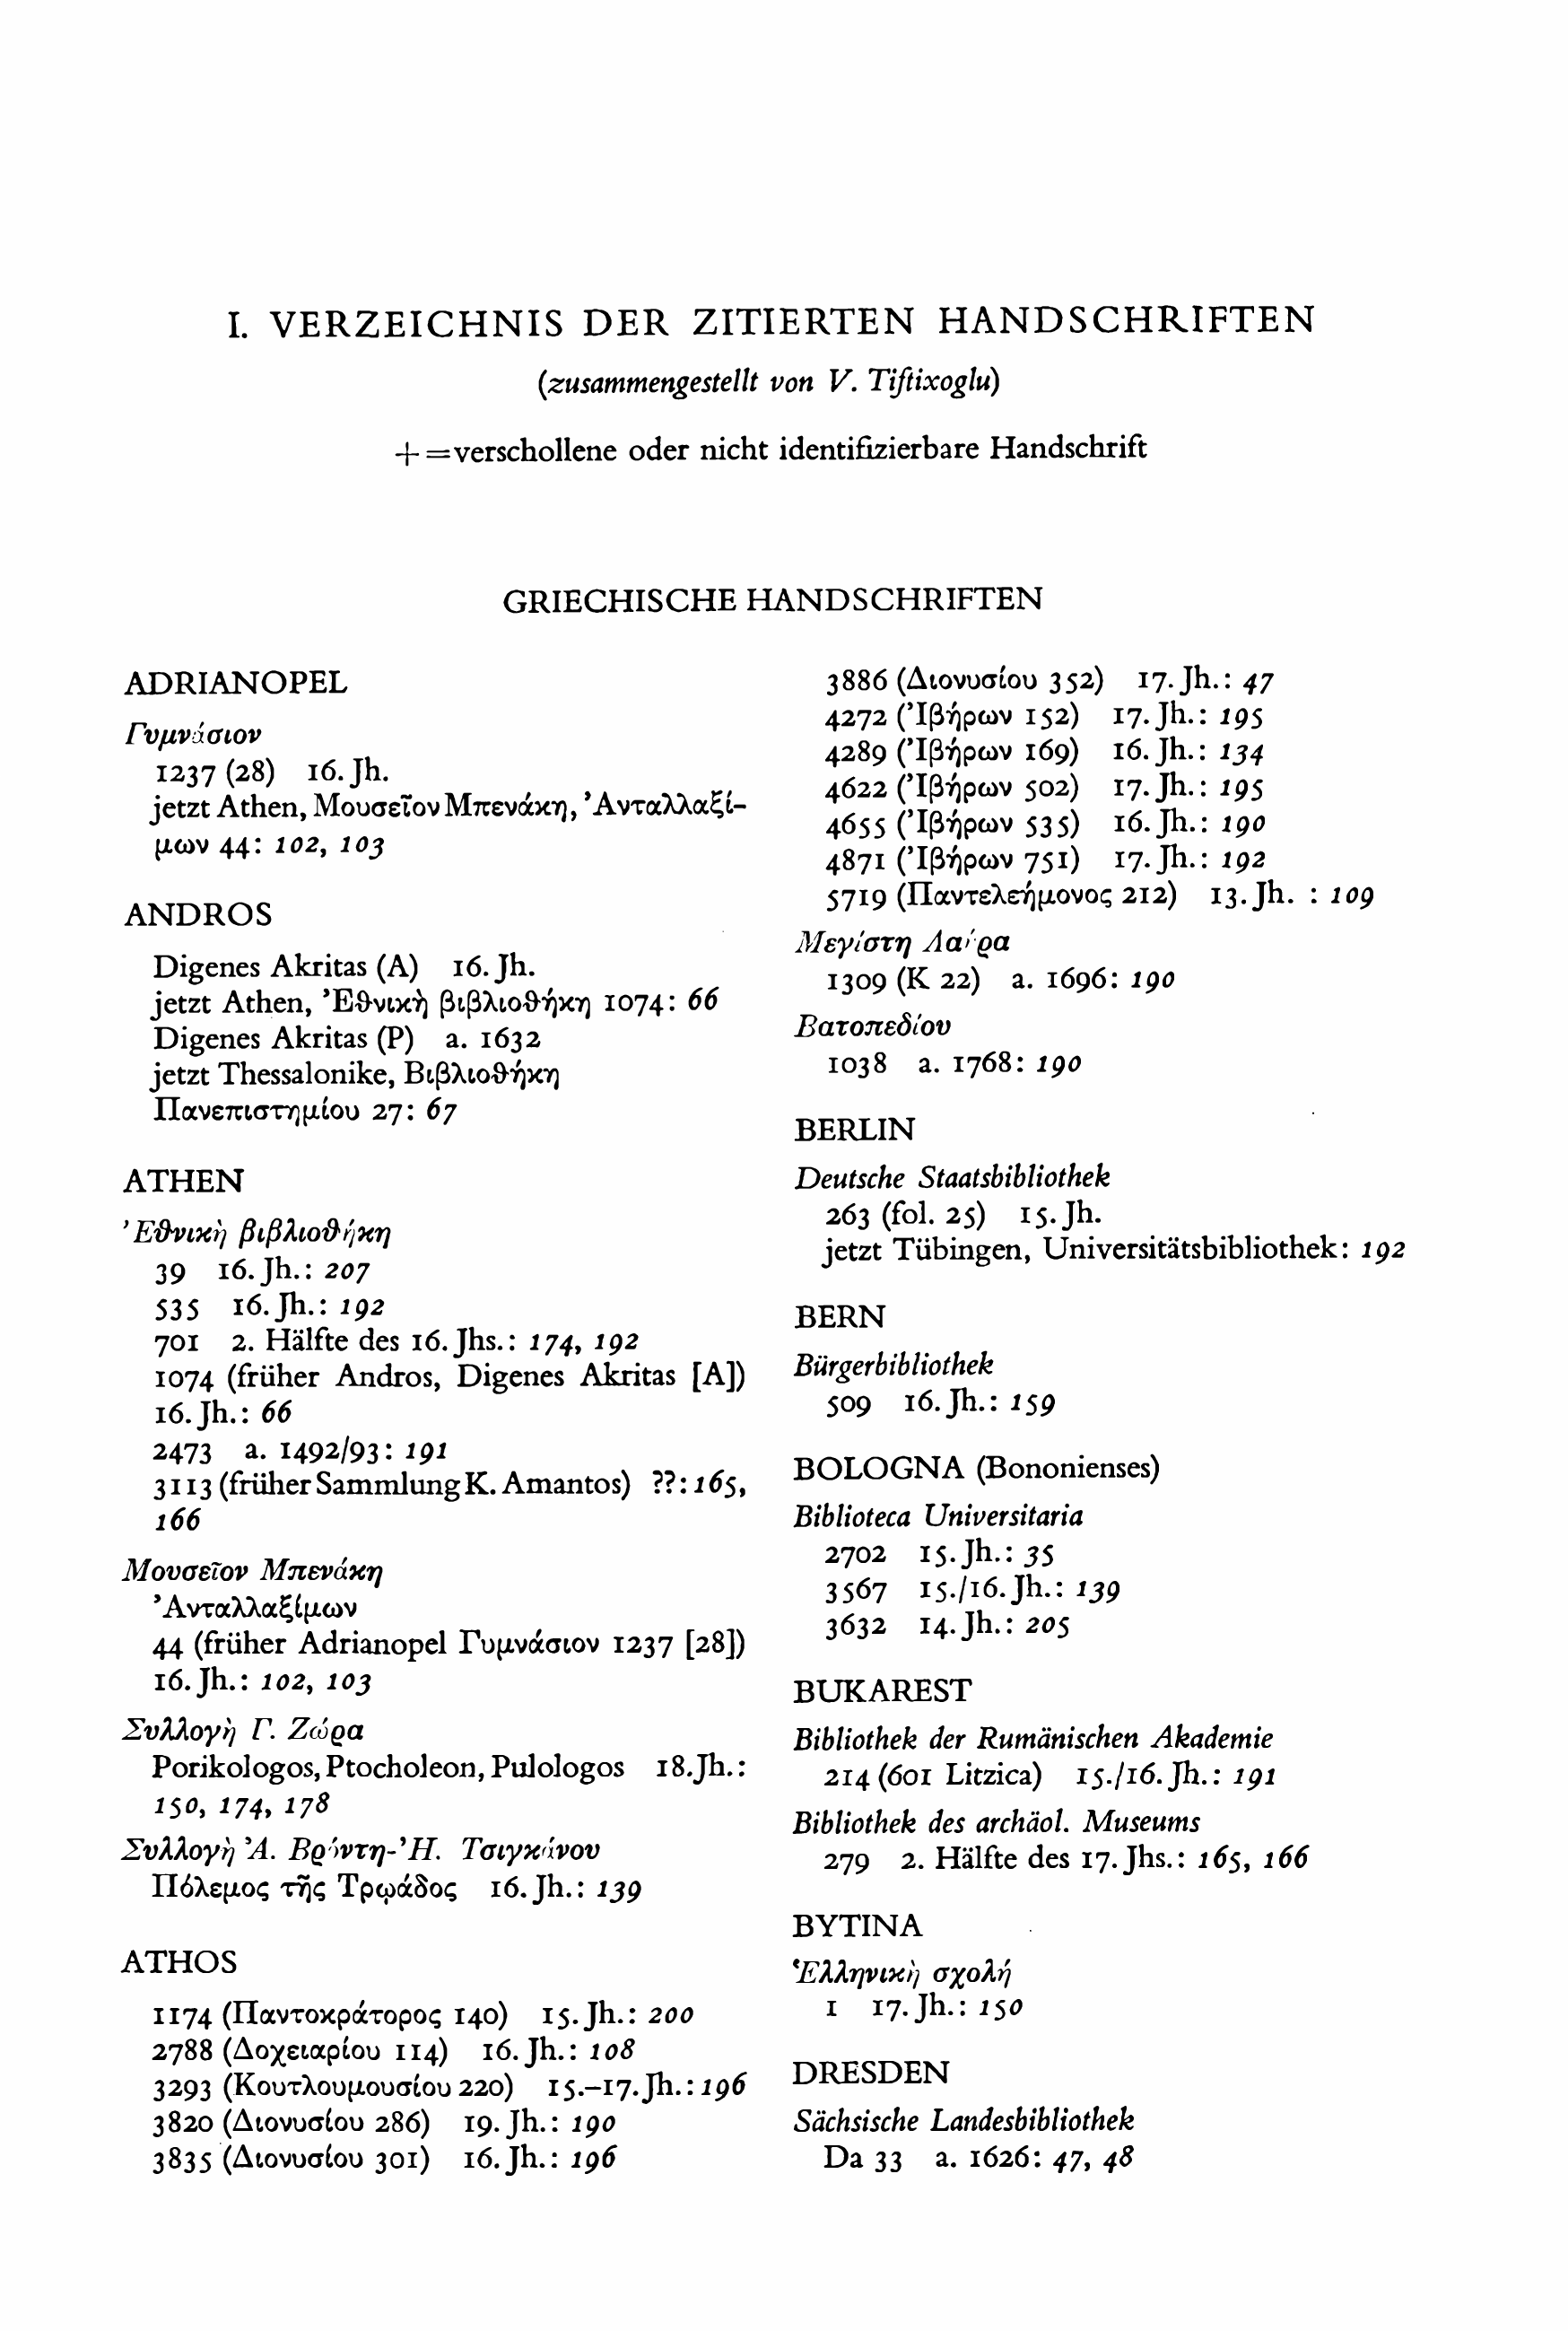 I. VERZEICHNIS DER ZITIERTEN HANDSCHRIFTEN
(zusammengestellt von V. Tiftixoglu)
+ =verschollene oder nicht identifizierbare Handschrift
GRIECHISCHE HANDSCHRIFTEN
ADRIANOPEL
Γυμνάσιον
1237 (28) 16. Jh.
jetzt Athen, Μουσεῖον Μπενάκη, Ἀνταλλαξί-
μων 44: 102, 103
ANDROS
Digenes Akritas (A) 16. Jh.
jetzt Athen, Ἐθνικὴ βιβλιοθήκη 1074: 66
Digenes Akritas (P) a. 1632
jetzt Thessalonike, Βιβλιοθήκη
Πανεπιστημίου 27: 67
ATHEN
Ἐθνικὴ βιβλιοθήκη
39 16. Jh.: 207
535 16. Jh.: 192
701 2. Hälfte des 16. Jhs.: 174, 192
1074 (früher Andros, Digenes Akritas [A])
16. Jh.: 66
2473 a. 1492/93: 191
3113 (früher Sammlung K. Amantos) ??: 165,
166
Μουσεῖον Μπενάκη
Ἀνταλλαξίμων
44 (früher Adrianopel Γυμνάσιον 1237 [28])
16. Jh.: 102, 103
Συλλογὴ Γ. Ζώρα
Porikologos, Ptocholeon, Pulologos 18. Jh.:
150, 174, 178
Συλλογὴ Ἀ. Βρόντη-Ἠ. Τσιγκάνου
Πόλεμος τῆς Τρῳάδος 16. Jh.: 139
ATHOS
1174 (Παντοκράτορος 140) 15. Jh.: 200
2788 (Δοχειαρίου 114) 16. Jh.: 108
3293 (Κουτλουμουσίου 220) 15.–17. Jh.: 196
3820 (Διονυσίου 286) 19. Jh.: 190
3835 (Διονυσίου 301) 16. Jh.: 196
3886 (Διονυσίου 352) 17. Jh.: 47
4272 (Ἰβήρων 152) 17. Jh.: 195
4289 (Ἰβήρων 169) 16. Jh.: 134
4622 (Ἰβήρων 502) 17. Jh.: 195
4655 (Ἰβήρων 535) 16. Jh.: 190
4871 (Ἰβήρων 751) 17. Jh.: 192
5719 (Παντελεήμονος 212) 13. Jh. : 109
Μεγίστη Λαύρα
1309 (K 22) a. 1696: 190
Βατοπεδίου
1038 a. 1768: 190
BERLIN
Deutsche Staatsbibliothek
263 (fol. 25) 15. Jh.
jetzt Tübingen, Universitätsbibliothek: 192
BERN
Bürgerbibliothek
509 16. Jh.: 159
BOLOGNA (Bononienses)
Biblioteca Universitaria
2702 15. Jh.: 35
3567 15./16. Jh.: 139
3632 14. Jh.: 205
BUKAREST
Bibliothek der Rumänischen Akademie
214 (601 Litzica) 15./16. Jh.: 191
Bibliothek des archäol. Museums
279 2. Hälfte des 17. Jhs.: 165, 166
BYTINA
Ἑλληνικὴ σχολή
1 17. Jh.: 150
DRESDEN
Sächsische Landesbibliothek
Da 33 a. 1626: 47, 48